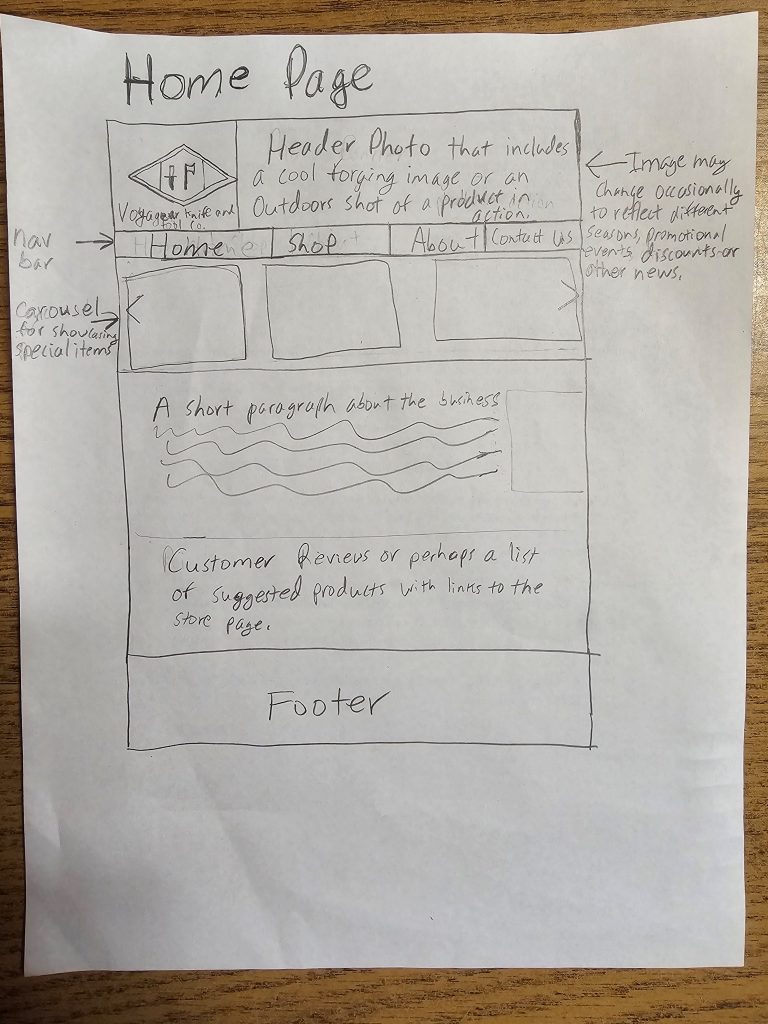 Home Page
Header Photo that includes
a cool forging image or an
Outdoors shot of a product in
action.
Voyageur knife and
tool co.
Image may
Change occasionally
to reflect different
seasons, promotional
events, discounts or
other news.
nav
bar
Home
Shop
About
Contact Us
Carousel
for showcasing
special items
A short paragraph about the business
Customer Reviews or perhaps a list
of suggested products with links to the
store page.
Footer